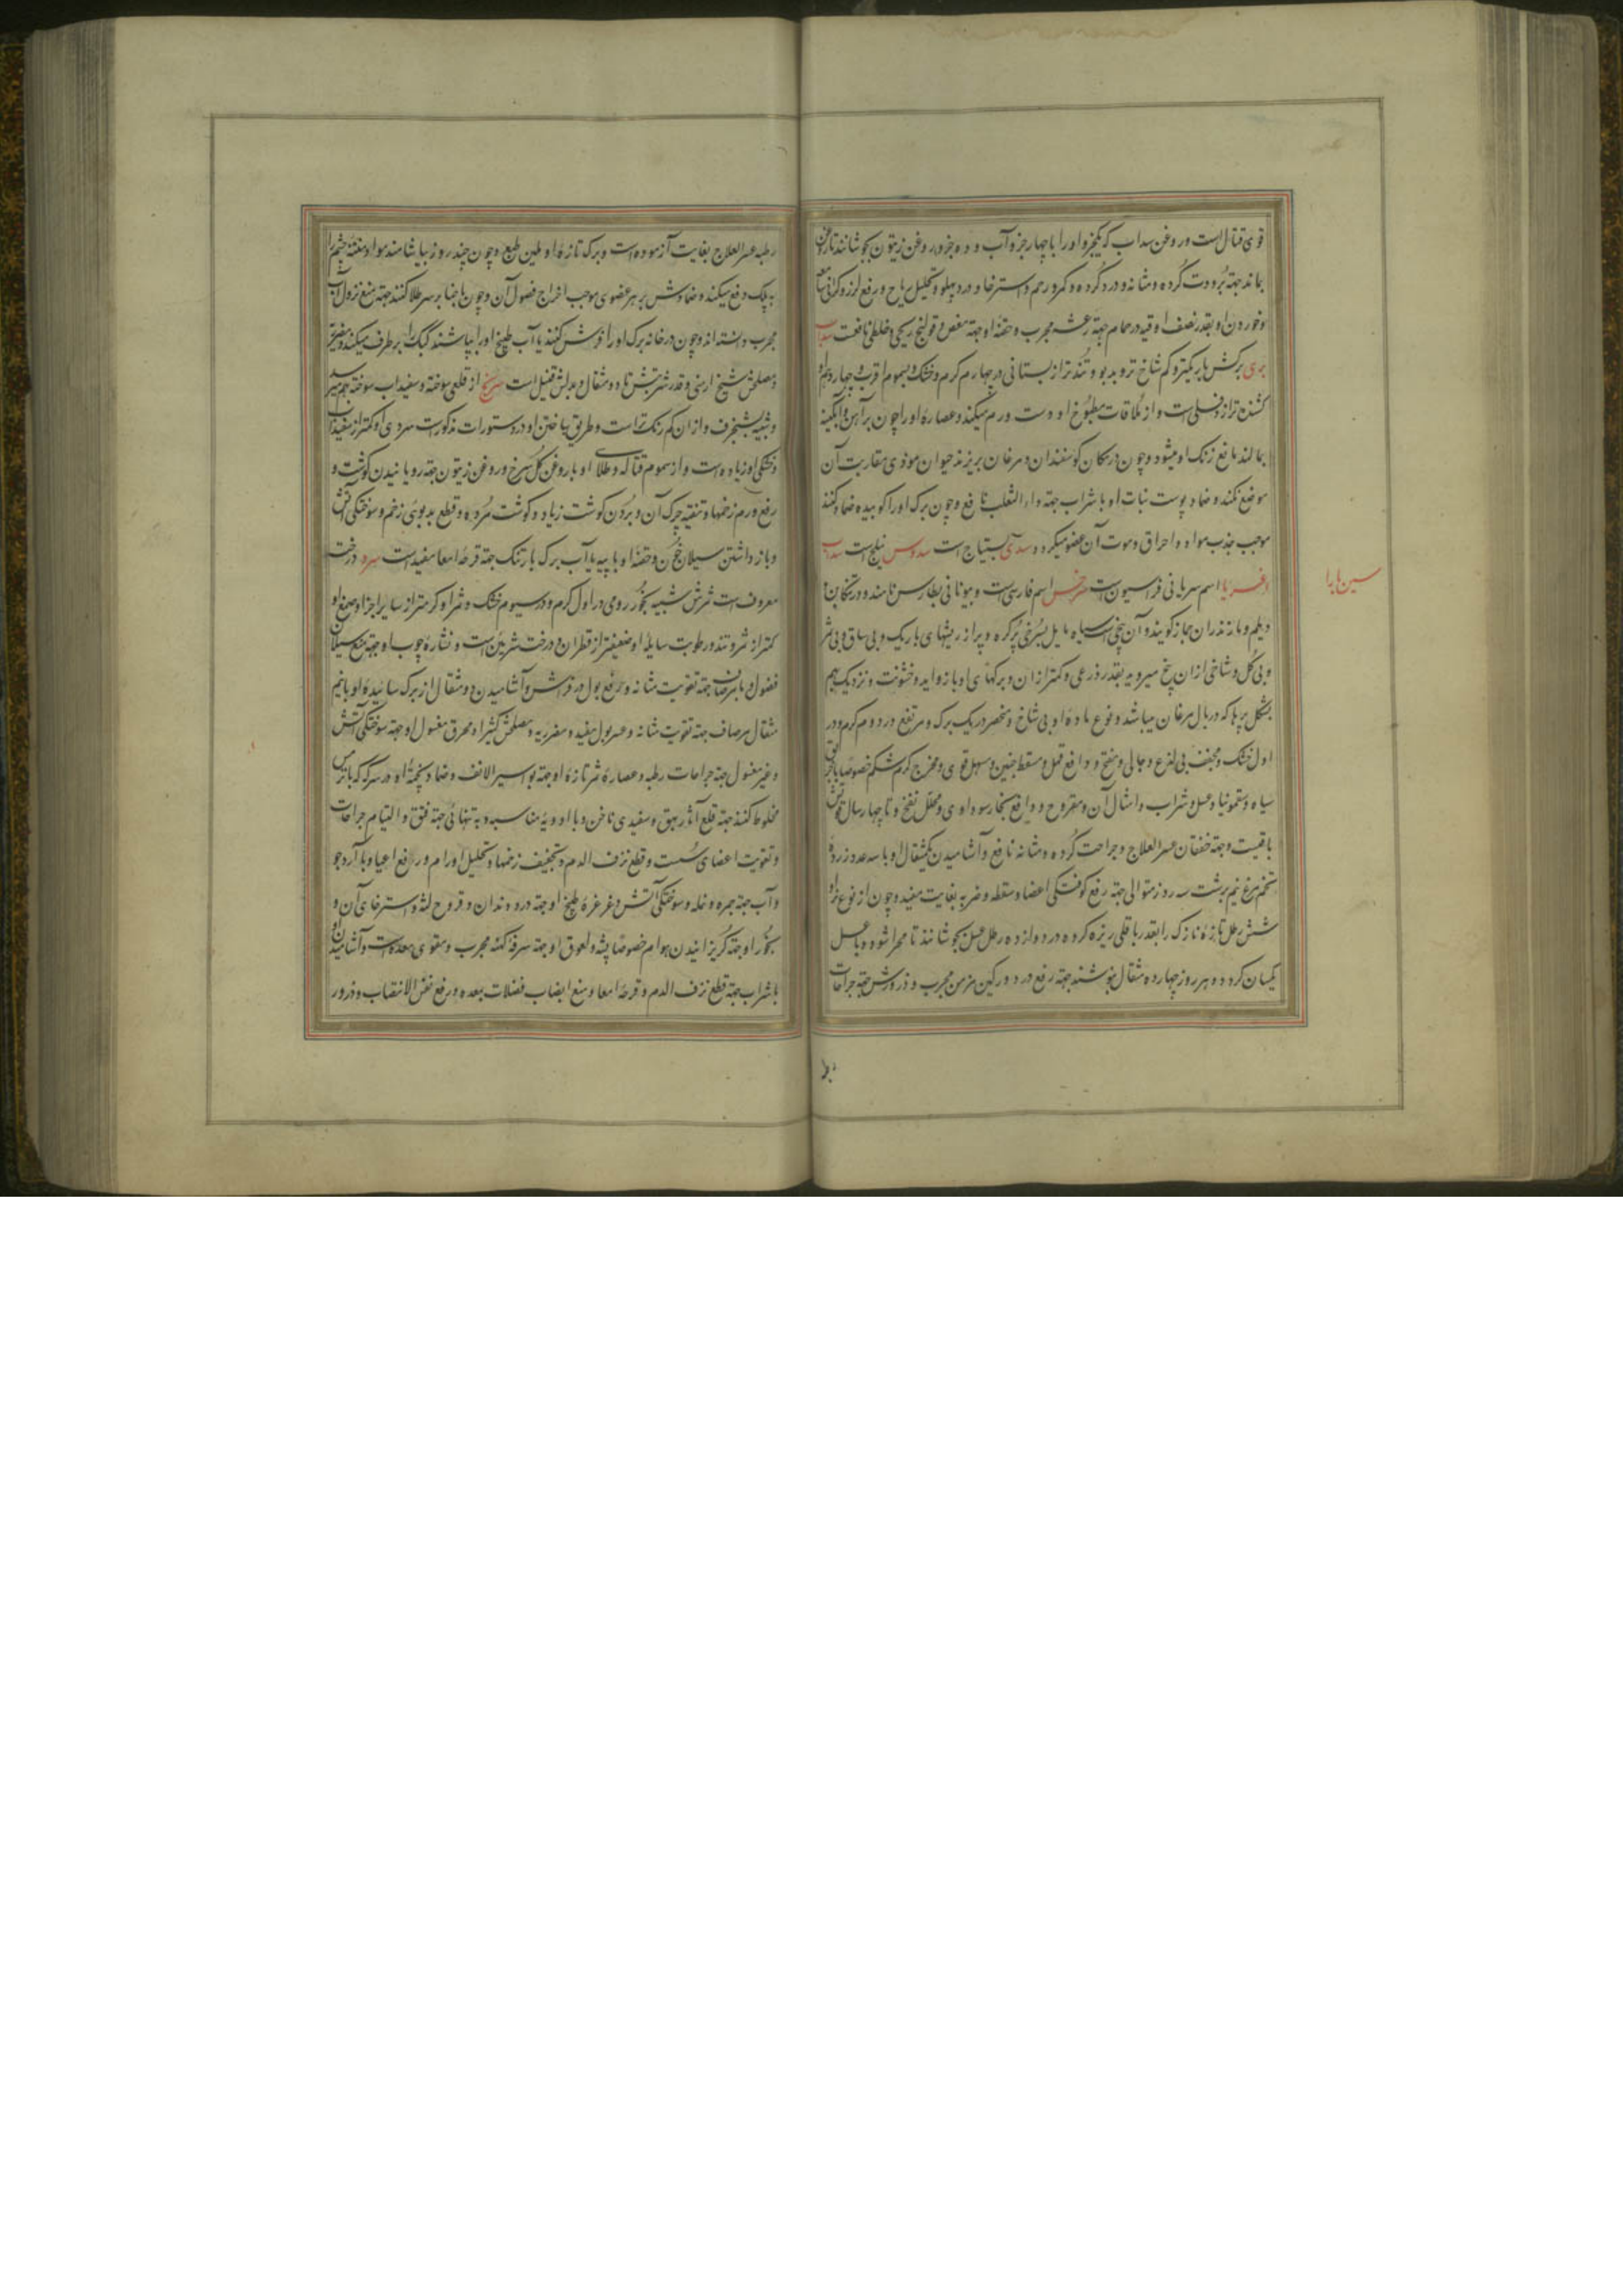 قوی قتال است و روغن سداب که یکجزو او را با چهار جزو آب و دو جزو روغن زیتون بجوشانند تا روغن
بماند جهة برودت گرده و مثانه و درد گرده و کمر و رحم و استرخا و درد پهلو و تحلیل ریاح و رفع لرز و کرانی سامعه
و خوردن او بقدر نصف اوقیه در حمام جهة رعشه مجرب و حقنه او جهة مغص و قولنج ریحی و خلطی نافعست سداب
بری برکش باریکتر و کم شاخ تر و بدبو و تندتر از بستانی در چهارم کرم و خشک و بسموم اقرب و چهار درهم او
کشنده تر از دفلی است و از ملاقات مطبوخ او دست ورم میکند و عصاره او را چون بر آهن و آبگینه
بمالند مانع زنک او میشود و چون در مکان کوسفندان و مرغان بریزند حیوان موذی مقاربت آن
موضع نکند و ضماد پوست نبات او با شراب جهة داء الثعلب نافع و چون برک او را کوبیده ضماد کنند
موجب جذب مواد و احراق و موت آن عضو میکردد سدی بستیاج است سدوس نیلج است سداب
اسم سریانی فراسیون است سرخس اسم فارسی است و بیونانی بطارس نامند و در تنکابن
سین با را
و دیلم و مازندران جماز کویند و آن بیخی است سیاه مایل بسرخی پرگره و پر از ریشهای باریک و بی ساق و بی ثمر
و بی گل و شاخی از ان بیخ میروید بقدر ذرعی و کمتر از ان و برکهای او با زواید و خشونت و نزدیک بهم
بشکل پرها که در بال مرغان میباشد و نوع ماده او بی شاخ و منحصر در یک برک و مرتفع در دوم کرم و در
اول خشک و مجفف بی لذع و جالی و مفتح و دافع قمل و مسقط جنین و مسهل قوی و مخرج کرم شکم خصوصا با خربق
سیاه و سقمونیا و عسل و شراب و امثال آن و مقروح و دافع بخار سوداوی و محلل نفخ و تا چهار سال قوتش
باقیست و جهة خفقان عسر العلاج و جراحت گرده و مثانه نافع و آشامیدن یکمثقال او با سه عدد زرده
تخم مرغ نیم برشت سه روز متوالی جهة رفع کوفتگی اعضا و سقطه و ضربه بغایت مفید و چون از نوع نر او
شش رطل تازه نازک را بقدر باقلی ریزه کرده در دوازده رطل عسل بجوشانند تا مهرا شود و با عسل
یکسان کردد و هر روز چهارده مثقال بنوشند جهة رفع درد ورکین مزمن مجرب و ذرورش جهة جراحات
رطبه عسر العلاج بغایت آزموده است و برک تازه او ملین طبع و چون چند روز بیاشامند مواد متعفنه چشم را
به پلک دفع میکند و ضمادش بر هر عضوی موجب اخراج فضول آن و چون با حنا بر سر طلا کنند جهة منع نزول آب
مجرب دانسته اند و چون در خانه برک او را فرش کنند یا آب طبیخ او را بپاشند کیک را بر طرف میکند و مضر ریه
و مصلحش شیح ارمنی و قدر شربتش تا دو مثقال و بدلش قنبیل است سرنج از قلعی سوخته و سفیداب سوخته بهم میرسد
و شبیه بشنجرف و از ان کم رنک تر است و طریق ساختن او در دستورات مذکور است سردی او کمتر از سفیداب
و خشکی او زیاده است و از سموم قتاله و طلای او با روغن گل سرخ و روغن زیتون جهة رویانیدن کوشت و
رفع ورم زخمها و تنقیه چرک آن و بردن کوشت زیاد و کوشت مرده و قطع بدبوئی زخم و سوختگی آتش
و باز داشتن سیلان خون و حقنه او با پیه یا آب برک بارتنک جهة قرحه امعا مفید است سرو درخت
معروف است ثمرش شبیه بجوز رومی در اول کرم و در سیوم خشک و ثمر او کرمتر از سایر اجزا و صمغ او
کمتر از ثمر و تند و رطوبت سایله او ضعیفتر از قطران و درخت شربین است و نشاره چوب او جهة منع سیلان
فضول و با مرصاف جهة تقویت مثانه و رفع بول در فراش و آشامیدن دو مثقال از برک سائیده او با نیم
مثقال مرصاف جهة تقویت مثانه و عسر بول مفید و مضر ریه و مصلحش کتیرا و محرق مغسول او جهة سوختگی آتش
و غیر مغسول جهة جراحات رطبه و عصاره ثمر تازه او جهة بواسیر الانف و ضماد پخته او در سرکه که با ترمس
مخلوط کنند جهة قلع آثار بهق و سفیدی ناخن و با ادویه مناسبه و به تنهائی جهة فتق و التیام جراحات
و تقویت اعضای سست و قطع نزف الدم و تجفیف زخمها و تحلیل اورام و رفع اعیا و با آرد جو
و آب جهة جمره و نمله و سوختگی آتش و غرغره طبیخ او جهة درد دندان و قروح لثه و استرخای آن و
بخور او جهة کریزانیدن هوام خصوصا پشه و لعوق او جهة سرفه کهنه مجرب و مقوی معده است و آشامیدن او
با شراب جهة قطع نزف الدم و قرحه امعا و منع انصباب فضلات بمعده و رفع نفس الانتصاب و ذرور